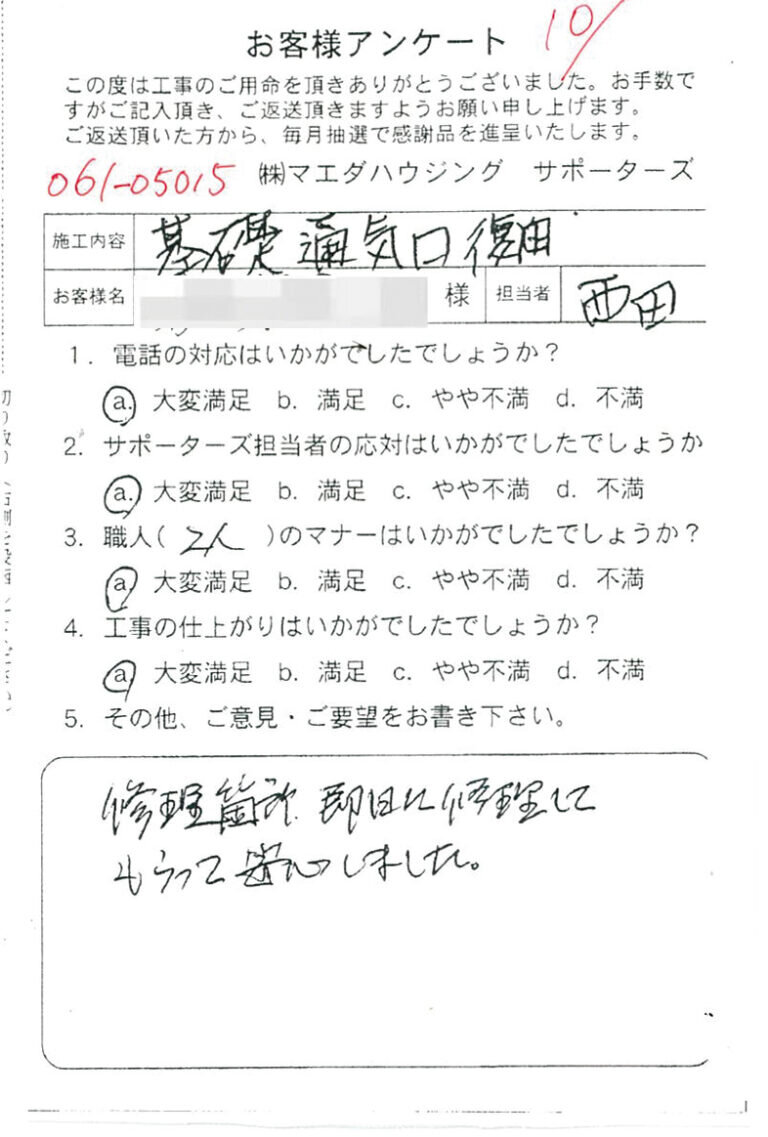 お客様アンケート 10/
この度は工事のご用命を頂きありがとうございました。お手数で
すがご記入頂き、ご返送頂きますようお願い申し上げます。
ご返送頂いた方から、毎月抽選で感謝品を進呈いたします。
061-05015 ㈱マエダハウジング サポーターズ
施工内容 基礎通気口復旧
お客様名 様 担当者 西田
1. 電話の対応はいかがでしたでしょうか?
a. 大変満足 b. 満足 c. やや不満 d. 不満
2. サポーターズ担当者の応対はいかがでしたでしょうか
a. 大変満足 b. 満足 c. やや不満 d. 不満
3. 職人( 2人 )のマナーはいかがでしたでしょうか?
a 大変満足 b. 満足 c. やや不満 d. 不満
4. 工事の仕上がりはいかがでしたでしょうか?
a 大変満足 b. 満足 c. やや不満 d. 不満
5. その他、ご意見・ご要望をお書き下さい。
修理箇所、即日に修理して
もらって安心しました。